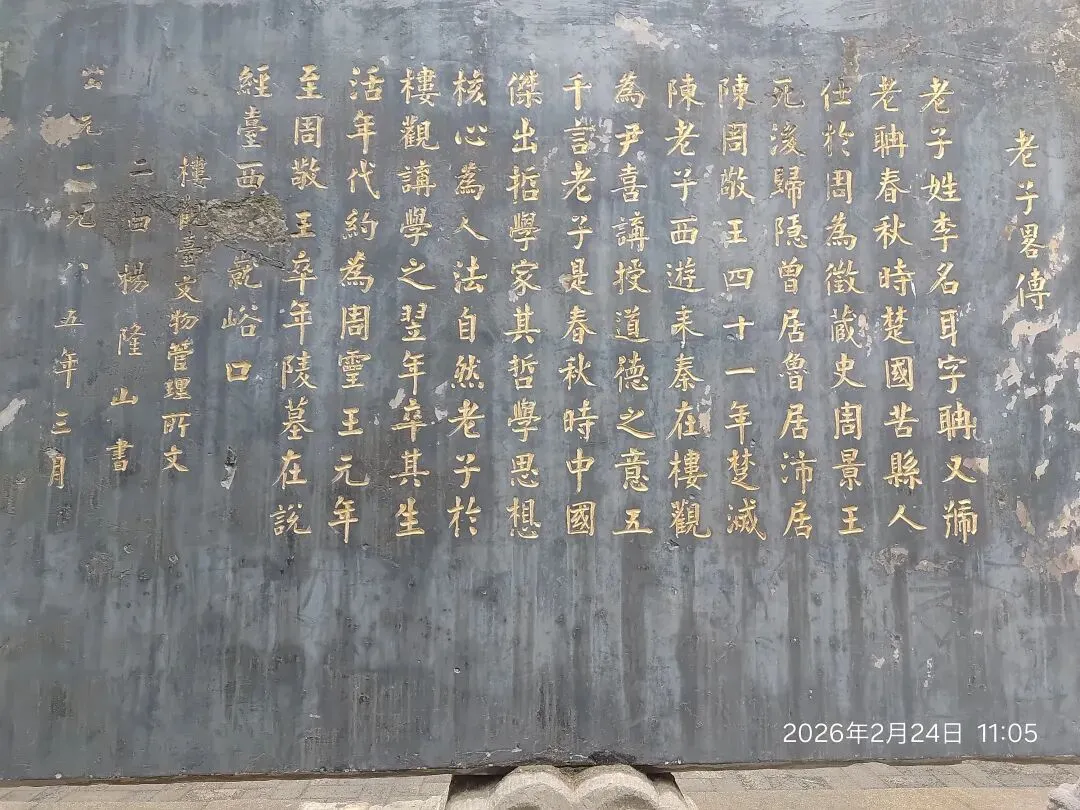 老子畧傳
老子姓李名耳字聃又称
老聃春秋時楚國苦縣人
仕於周為徵藏史周景王
死後歸隱曾居魯居沛居
陳周敬王四十一年楚滅
陳老子西遊来秦在樓觀
為尹喜講授道德之意五
千言老子是春秋時中國
傑出哲學家其哲學思想
核心為人法自然老子於
樓觀講學之翌年卒其生
活年代約為周靈王元年
至周敬王卒年陵墓在説
經臺西就峪口
樓觀臺文物管理所文
二曲楊隆山書
公元一九八五年三月
2026年2月24日 11:05